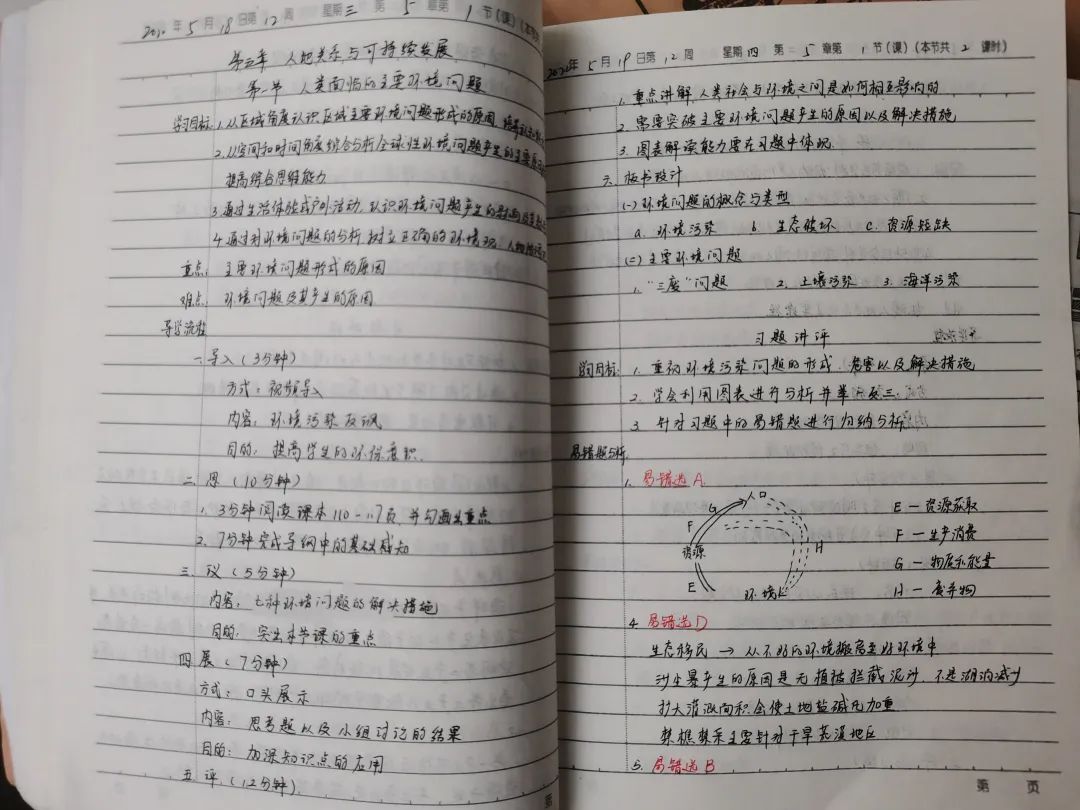 2022年5月18日第12周 星期三 第5章第1节(课)(本节
第五章 人地关系与可持续发展
第一节 人类面临的主要环境问题
学习目标: 1.从区域角度认识区域主要环境问题形成的原因,
2.从空间和时间角度综合分析全球性环境问题产生的主要原
提高综合思维能力
3.通过生活体验或户外活动,认识环境问题产生的
4.通过对环境问题的分析,树立正确的环境观、人地
重点: 主要环境问题形成的原因
难点: 环境问题及其产生的原因
导学流程
一.导入(3分钟)
方式:视频导入
内容:环境污染反讽
目的:提高学生的环保意识.
二.思(10分钟)
1. 3分钟阅读课本110-117页,并勾画出重点
2. 7分钟完成导纲中的基础感知
三.议(5分钟)
内容:七种环境问题的解决措施
目的:突出本节课的重点
四.展(7分钟)
方式:口头展示
内容:思考题以及小组讨论的结果
目的:加深知识点的应用
五.评.(12分钟)
第
2022年5月19日第12周 星期四 第5章第1节(课)(本节共2课时)
1.重点讲解人类社会与环境之间是如何相互影响的
2.需要突破主要环境问题产生的原因以及解决措施
3.图表解读能力要在习题中体现.
六.板书设计
(一)环境问题的概念与类型
a.环境污染 b.生态破坏 c.资源短缺
(二)主要环境问题
1."三废"问题 2.土壤污染 3.海洋污染
习题讲评
学习目标: 1.重视环境污染问题的形式、危害以及解决措施
2.学会利用图表进行分析并举一反三.
3.针对习题中的易错题进行归纳分析.
易错题分析.
1.易错选A.
人口
G
F
资源
H
E
环境
E—资源获取
F—生产消费
G—物质和能量
H—废弃物
4.易错选D
生态移民→从不好的环境搬离至好环境中
沙尘暴产生的原因是无植被拦截泥沙,不是湖泊减少
扩大灌溉面积会使土地盐碱化加重
禁樵禁采主要针对干旱荒漠地区
5.易错选B
第 页